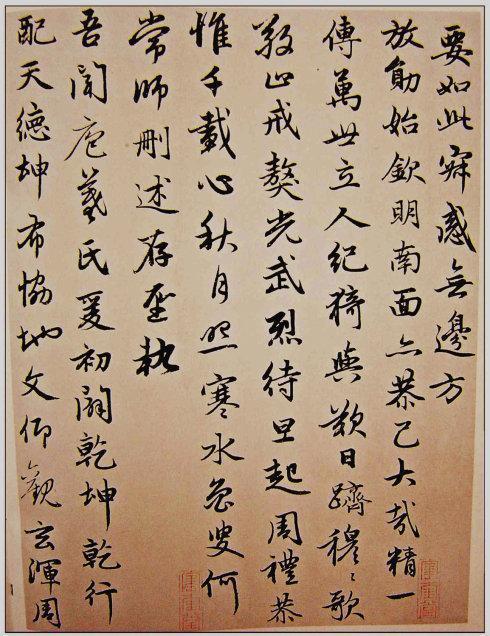 要如此寂感无邊方
放勛始欽明南面亦恭己大哉精一
傳萬世立人紀猗與歎日躋穆〻歌
敬止戒獒光武烈待旦起周禮恭
惟千載心秋月照寒水魯叟何
常師刪述存聖軌
吾聞庖羲氏爰初闢乾坤乾行
配天德坤布協地文仰觀玄渾周